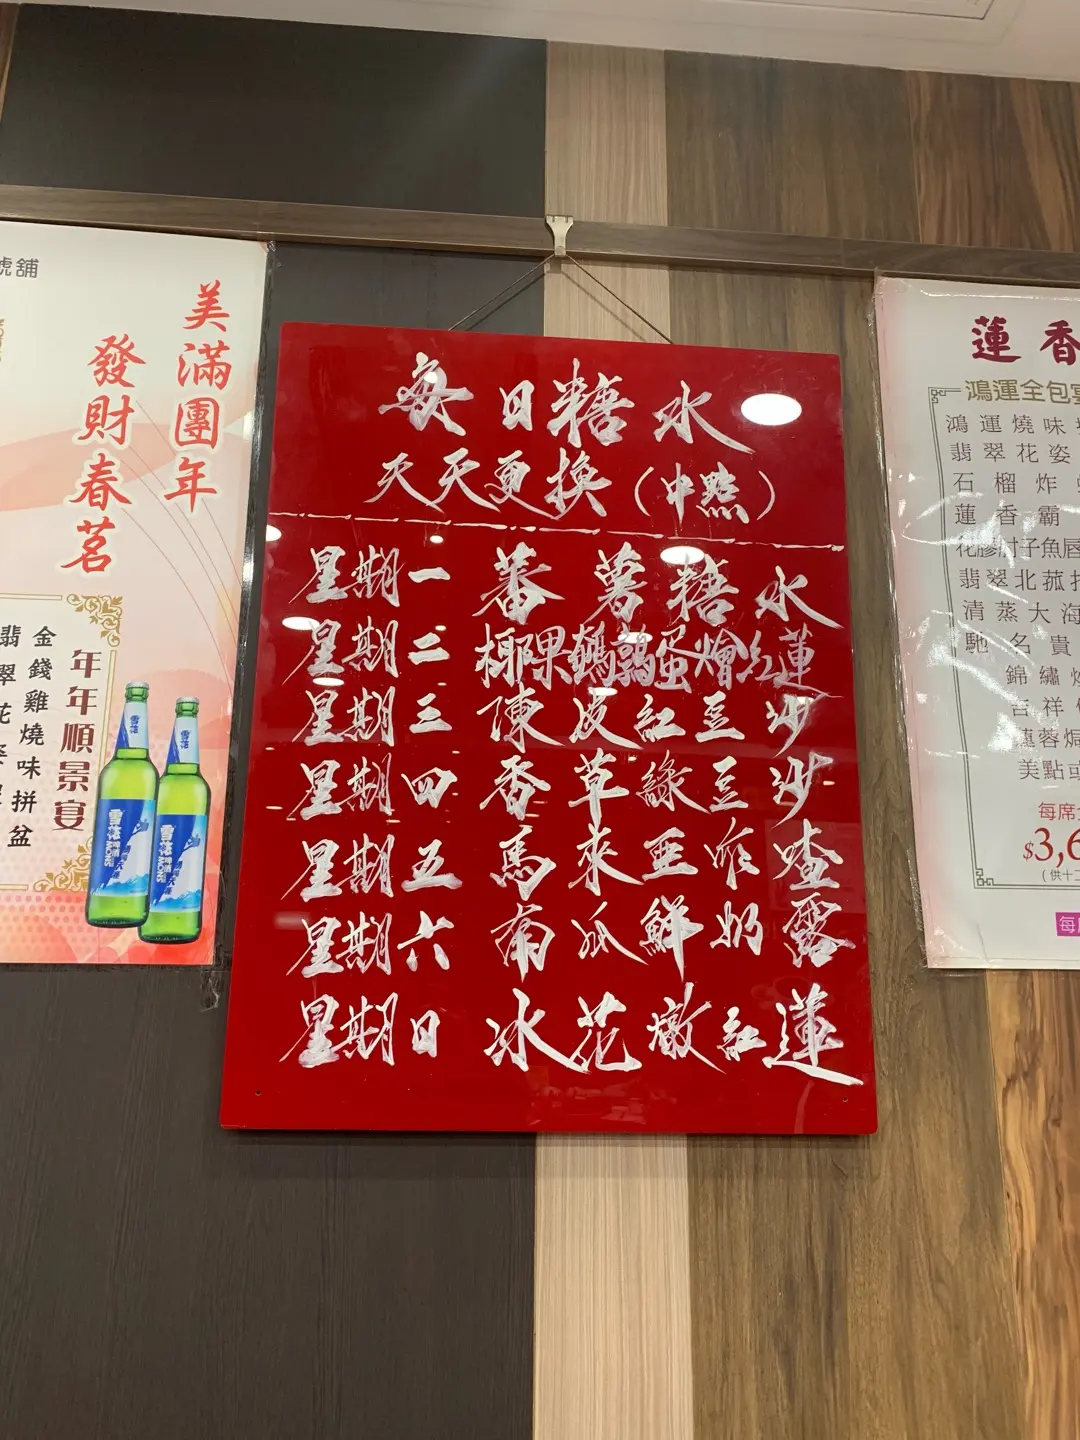 號舖
美滿團年
發財春茗
年年順景宴
金錢雞燒味拼盆
翡翠花
每日糖水
天天更換（中點）
星期一 蕃薯糖水
星期二 椰果鵪鶉蛋燴紅蓮
星期三 陳皮紅豆沙
星期四 香草綠豆沙
星期五 馬來亞咋喳
星期六 南瓜鮮奶露
星期日 冰花燉紅蓮
蓮香
鴻運全包宴
鴻運燒味
翡翠花姿
石榴炸
蓮香霸
花膠肘子魚唇
翡翠北菰
清蒸大海
馳名貴
錦繡炒
吉祥
蓮蓉焗
美點
每席
$3,6
(供十二
每席